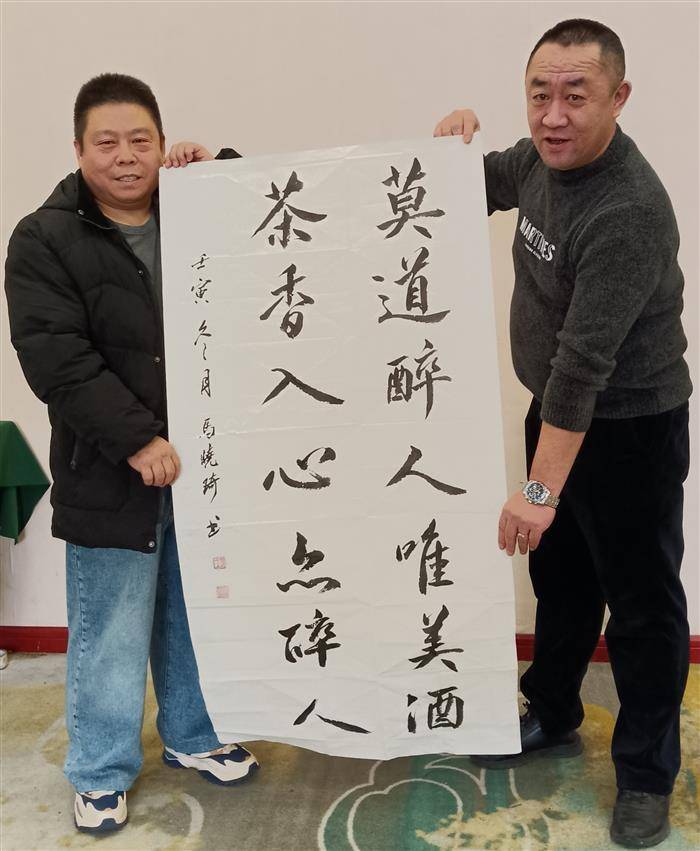 莫道醉人唯美酒
茶香入心亦醉人
壬寅冬月 馬曉琦书